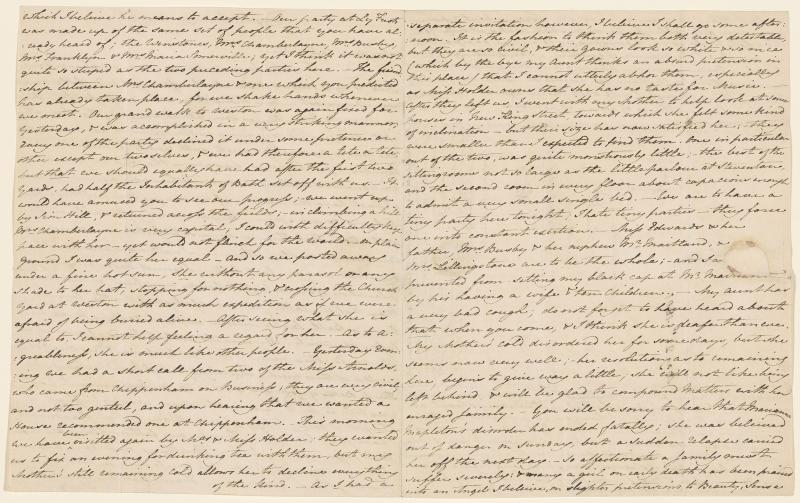 which I believe he means to accept. – Our party at Ly Fust
was made up of the same set of people that you have al:
:ready heard of; the Winstones, Mrs Chamberlayne, Mrs Busby,
Mrs Franklyn & Mrs Maria Somerville; yet I think it was not
quite so stupid as the two preceding parties here. – The friend
:ship between Mrs Chamberlayne & me which you predicted
has already taken place, for we shake hands whenever
we meet. Our grand walk to Weston was again fixed for
Yesterday, & was accomplished in a very striking manner;
Every one of the party declined it under some pretence or
other except our two selves, & we had therefore a tete a tete,
but that we should equally have had after the first two
yards, had half the Inhabitants of Bath set off with us. – It
would have amused you to see our progress; – we went up
by Sion Hill, & returned across the fields; – in climbing a hill
Mrs Chamberlayne is very capital; I could with difficulty keep
pace with her – yet would not flinch for the world. – On plain
ground I was quite her equal – and so we posted away
under a fine hot sun, She without any parasol or any
shade to her hat, stopping for nothing, & crossing the Church
Yard at Weston with as much expedition as if we were
afraid of being buried alive. – After seeing what she is
equal to, I cannot help feeling a regard for her. – As to A:
:greableness, she is much like other people. – Yesterday Even:
:ing we had a short call from two of the Miss Arnolds,
who came from Chippenham on Business; they are very civil,
and not too genteel, and upon hearing that we wanted a
House recommended one at Chippenham. – This morning
we have been visited again by Mrs & Miss Holder; they wanted
us to fix an evening for drinking tea with them, but my
Mother's still remaining cold allows her to decline everything
of the kind. – As I had a
separate invitation however, I beleive I shall go some after:
:noon. It is the fashion to think them both very detestable,
but they are so civil, & their gowns look so white & so nice
(which by the bye my Aunt thinks an absurd pretension in
this place) that I cannot utterly abhor them, especially
as Miss Holder owns that she has no taste for Music. –
After they left us, I went with my Mother to help look at some
houses in New King Street, towards which she felt some kind
of inclination – but their size has now satisfied her; – they
were smaller than I expected to find them. One in particular
out of the two, was quite monstrously little; – the best of the
sittingrooms not so large as the little parlour at Steventon,
and the second room in every floor about capacious enough
to admit a very small single bed. – We are to have a
tiny party here tonight; I hate tiny parties – they force
one into constant exertion. – Miss Edwards & her
father, Mrs Busby & her nephew Mr Maitland, &
Mrs Lillingstone are to be the whole; – and I am
prevented from setting my black cap at Mr Maitland
by his having a wife & ten Children. – My Aunt has
a very bad cough; do not forget to have heard about
that when you come, & I think she is deafer than ever.
My Mother's cold disordered her for some days, but she
seems now very well; – her resolution as to remaining
here, begins to give way a little; she will not like being
left behind & will be glad to compound Matters with her
enraged family. – You will be sorry to hear that Marianne
Mapleton's disorder has ended fatally; she was beleived
out of danger on Sunday, but a sudden relapse carried
her off the next day. – So affectionate a family must
suffer severely; & many a girl on early death has been praised
into an Angel I beleive, on slighter pretensions to Beauty, Sense